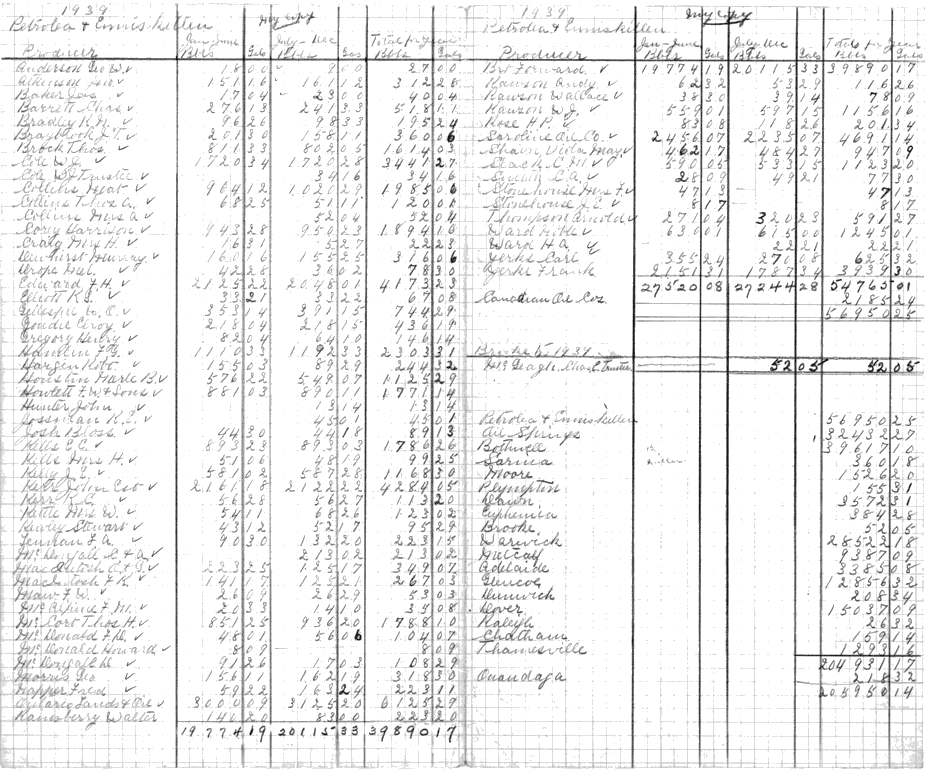 1939
My Copy
Petrolea & Enniskillen
Jan-June July-Dec Total for year
Producer Bbls Gals Bbls Gas Bbls Gals
Anderson Geo W. ✓ 18 00 9 00 27 00
Baker Jas. ✓ 17 04 23 00 40 04
Barrett Chas ✓ 276 13 241 33 518 11
Bradley R.H. ✓ 96 26 98 33 195 24
Braybrook J.T. ✓ 201 30 158 11 360 06
Brock Thos. ✓ 811 33 802 05 1614 03
Cole W.J. ✓ 1720 34 1720 28 3441 27
Cole WJ Trustee ✓ 34 16 34 16
Collins Mat ✓ 964 12 1020 29 1985 06
Collins Thos A. ✓ 68 25 51 11 120 01
Collins Mrs A ✓ 52 04 52 04
Corey Harrison ✓ 943 28 950 23 1894 16
Craig Mrs H. ✓ 16 31 5 27 22 23
Dewhurst Murray ✓ 160 16 155 25 316 06
Drope Mel. ✓ 42 28 36 02 78 30
Edward F.H. ✓ 2125 22 2048 01 4173 23
Elliott K.G. ✓ 33 21 33 22 67 08
Gillespie W. C. ✓ 353 14 391 15 744 29
Goudie Elroy ✓ 218 04 218 15 436 19
Gregory Henry ✓ 82 04 64 10 146 14
Hamlin F.G. ✓ 1110 33 1192 33 2303 31
Hargen Robt ✓ 155 03 89 29 244 32
Houston Marle B. ✓ 576 22 549 07 1125 29
Howlett F.W & Sons ✓ 881 03 890 11 1771 14
Hunter John ✓ 13 14 13 14
Jossman K.E. ✓ 45 01 45 01
Josh Bloss ✓ 44 30 44 18 89 13
Kells C.E. ✓ 893 23 893 03 1786 26
Kells Mrs H. ✓ 51 06 48 19 99 25
Kelly J.T. ✓ 581 02 587 28 1168 30
Kerr John Est ✓ 2161 18 2122 22 4284 05
Kerr K.C. ✓ 56 28 56 27 113 20
Kettle Mrs W. ✓ 54 11 68 26 123 02
Kewley Stewart ✓ 43 12 52 17 95 29
Lennan F.A. ✓ 90 30 132 20 223 15
McDougall C & A. ✓ 213 02 213 02
MacIntosh C & G. ✓ 223 25 125 17 349 07
MacIntosh F.K. ✓ 141 17 125 21 267 03
Maw F.W. ✓ 26 09 26 29 53 03
McAlpine F.M. ✓ 20 33 14 10 35 08
McCort Thos H. ✓ 851 25 936 20 1788 10
McDonald F.D. ✓ 48 01 56 06 104 07
McDonald Howard ✓ 8 09 8 09
McDougall D. ✓ 91 26 17 03 108 29
Morris Geo ✓ 156 11 162 19 318 30
Napper Fred ✓ 59 22 163 24 223 11
Ontario Lands & Oil ✓ 3000 09 3125 20 6125 29
Ramsberry Walter 140 20 83 00 223 20
19774 19 20115 33 39890 17
1939
My Copy
Petrolea & Enniskillen
Jan-June July-Dec Total for Year
Producer Bbls Gals Bbls Gals Bbls Gals
Bro Forward. ✓ 19774 19 20115 33 39890 17
Rawson Andy. ✓ 62 32 53 29 116 26
Rawson Wallace ✓ 38 30 39 14 78 09
Rawson W.J. ✓ 559 01 597 15 1156 16
Rose H.K. ✓ 83 08 118 26 201 34
Saroline Oil Co. ✓ 2456 07 2235 07 4691 14
Shaw Viola May. ✓ 462 17 484 27 947 09
Slack C.M. ✓ 590 05 533 15 1123 20
Smith C.A. ✓ 28 09 49 21 77 30
Stonehouse Mrs F. ✓ 47 13 47 13
Stonehouse J.E. ✓ 8 17 8 17
Thompson Arnold ✓ 271 04 320 23 591 27
Ward Noble ✓ 630 01 615 00 1245 01
Ward H.A. ✓ 22 21 22 21
Yerks Carl ✓ 355 24 270 08 625 32
Yerks Frank 2151 31 1787 34 3939 30
27520 08 27244 28 54765 01
Canadian Oil Cos 2185 24
56950 25
Brooke 1939
52 05 52 05
Petrolea & Enniskillen 56950 25
Oil Springs 32432 27
Bothwell 39617 10
Sarnia 360 18
Moore 1526 20
Plympton 55 31
Dawn 3572 31
Euphemia 384 28
Brooke 52 05
Warwick 28522 18
Metcalf 9387 09
Adelaide 3385 08
Glencoe 12856 32
Dunwich 208 34
Dover 15037 09
Raleigh 26 32
Chatham 159 14
Thamesville 1293 16
204931 17
Onondaga 218 32
205950 14